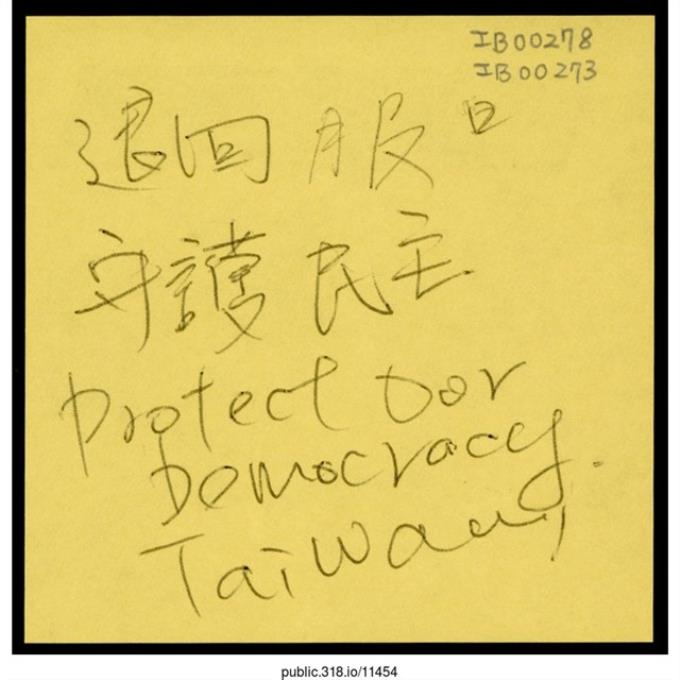 IB00278
IB00273
退回服口
守護民主
Protect Our
Democracy.
Taiwan,
public.318.io/11454